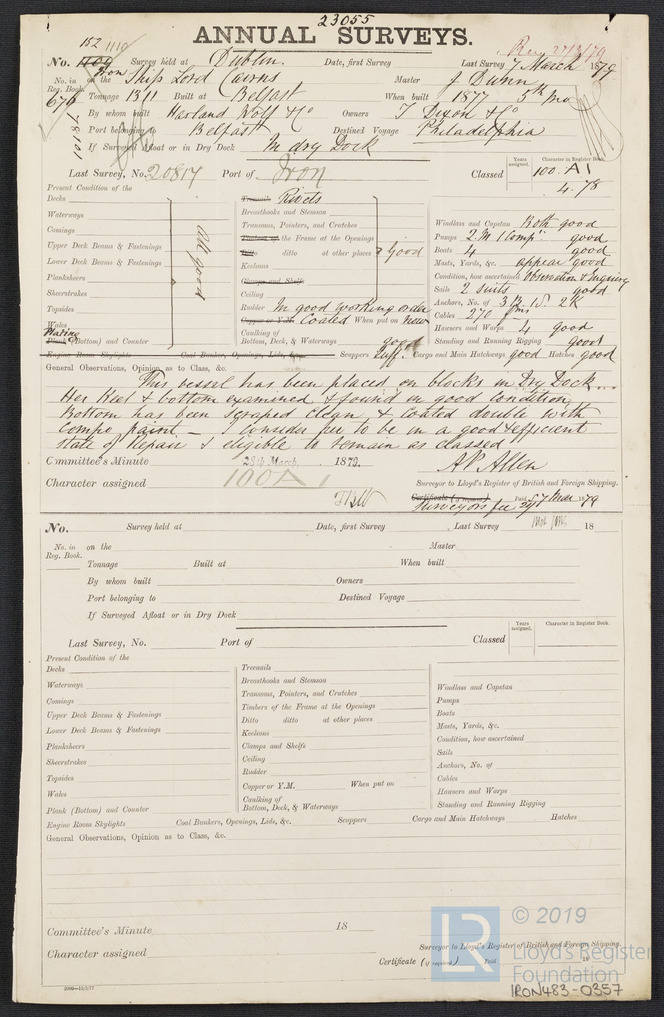 23055
ANNUAL SURVEYS.
152 1110
Rec 27/3/79
No. 1109 Survey held at Dublin. Date, first Survey Last Survey 7 March 1879
No. in Reg. Book. 676 on the Iron Ship Lord Cairns Master J Dunn
Tonnage 1311 Built at Belfast When built 1877 5th Mo
By whom built Harland Wolf & Co Owners T Dixon & Co
Port belonging to Belfast Destined Voyage Philadelphia
If Surveyed Afloat or in Dry Dock In dry Dock
18101
Last Survey, No. 20817 Port of Iron Classed
Years assigned. Character in Register Book.
100 A1
4.78
Present Condition of the
Decks
Waterways
Comings
Upper Deck Beams & Fastenings
Lower Deck Beams & Fastenings
Planksheers
Sheerstrakes
Topsides
Wales
Plating
Plank (Bottom) and Counter
all good
Treenails Rivets
Breasthooks and Stemson
Transoms, Pointers, and Crutches
Timbers of the Frame at the Openings
Ditto ditto at other places
Keelsons
Clamps and Shelfs
Ceiling
good
Rudder In good working order
Copper or Y.M. Coated When put on now
Caulking of
Bottom, Deck, & Waterways good
Windlass and Capstan Both good
Pumps 2 M 1 Comp. good
Boats 4 good
Masts, Yards, &c. appear good
Condition, how ascertained Observation & Enquiry
Sails 2 suits good
Anchors, No. of 3 B. 1 S. 2 K
Cables 270 fms
Hausers and Warps 4 good
Standing and Running Rigging good
Engine Room Skylights Coal Bunkers, Openings, Lids, &c. Scuppers Suff. Cargo and Main Hatchways good Hatches good
General Observations, Opinion as to Class, &c.
This vessel has been placed on blocks in Dry Dock
Her Keel & bottom examined & found in good condition
Bottom has been scraped clean & coated double with
Compo paint — I consider her to be in a good & efficient
state of Repair & eligible to remain as classed
Committee's Minute 28th March, 1879.
A P Allen
Character assigned 100 A 1
Surveyor to Lloyd's Register of British and Foreign Shipping.
Certificate (if required) Paid 7 Mar 1879
Surveyors fee
No. Survey held at Date, first Survey Last Survey 18
No. in Reg. Book. on the Master
Tonnage Built at When built
By whom built Owners
Port belonging to Destined Voyage
If Surveyed Afloat or in Dry Dock
Last Survey, No. Port of Classed
Years assigned. Character in Register Book.
Present Condition of the
Decks
Waterways
Comings
Upper Deck Beams & Fastenings
Lower Deck Beams & Fastenings
Planksheers
Sheerstrakes
Topsides
Wales
Plank (Bottom) and Counter
Treenails
Breasthooks and Stemson
Transoms, Pointers, and Crutches
Timbers of the Frame at the Openings
Ditto ditto at other places
Keelsons
Clamps and Shelfs
Ceiling
Rudder
Copper or Y.M. When put on
Caulking of
Bottom, Deck, & Waterways
Windlass and Capstan
Pumps
Boats
Masts, Yards, &c.
Condition, how ascertained
Sails
Anchors, No. of
Cables
Hausers and Warps
Standing and Running Rigging
Engine Room Skylights Coal Bunkers, Openings, Lids, &c. Scuppers Cargo and Main Hatchways Hatches
General Observations, Opinion as to Class, &c.
Committee's Minute 18
Character assigned
Surveyor to Lloyd's Register of British and Foreign Shipping.
Certificate (if required) Paid 18
2000—15/5/77
LR
© 2019
Lloyd's Register
Foundation
IRON483-0357